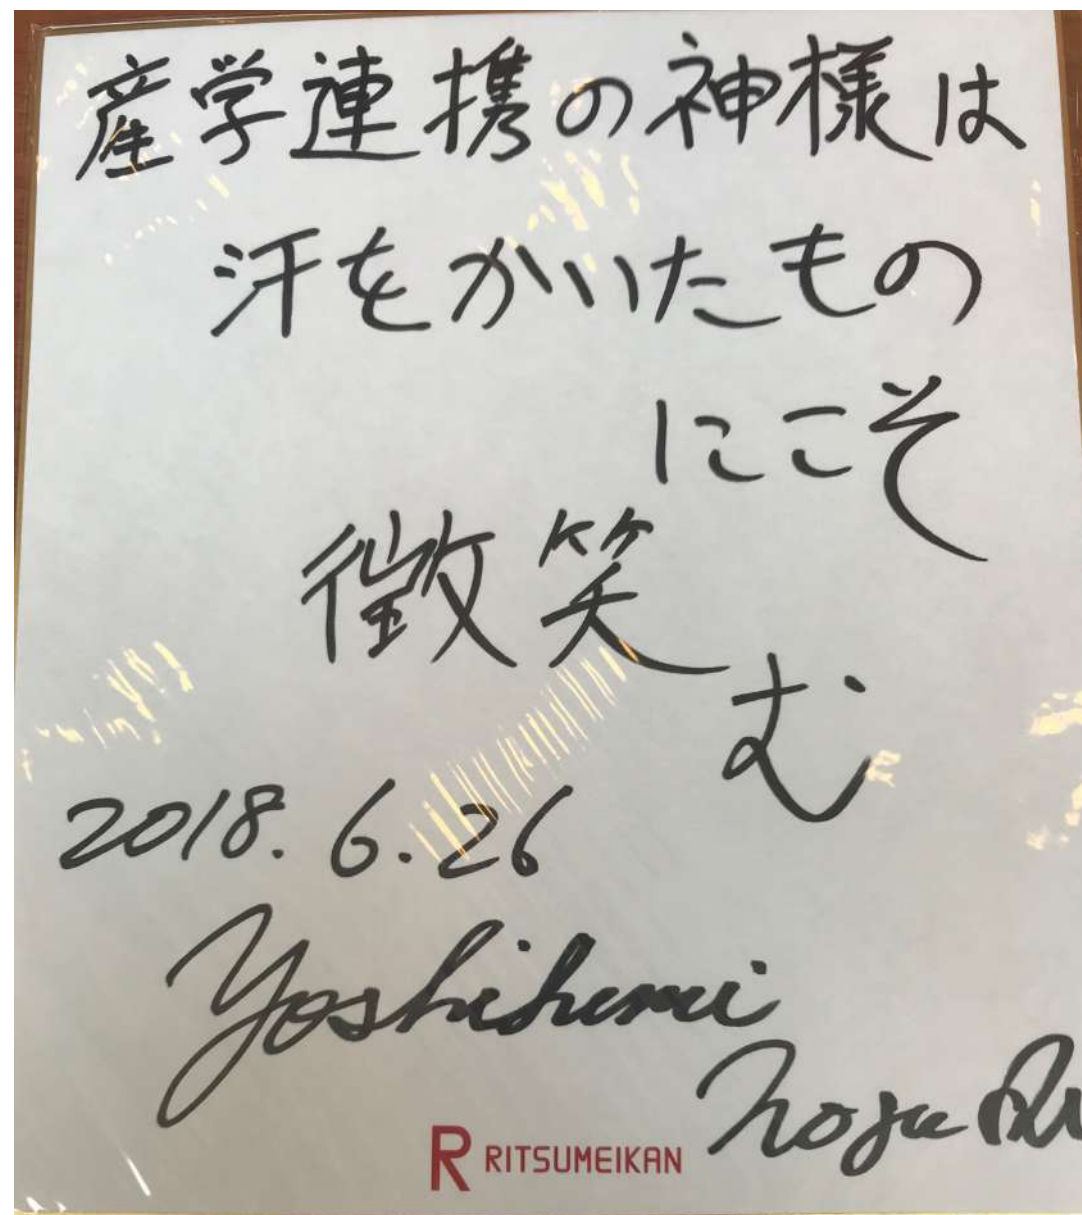 産学連携の神様は
汗をかいたもの
にこそ
徴笑
む
2018.6.26
Yoshihumi
RITSUMEIKAN